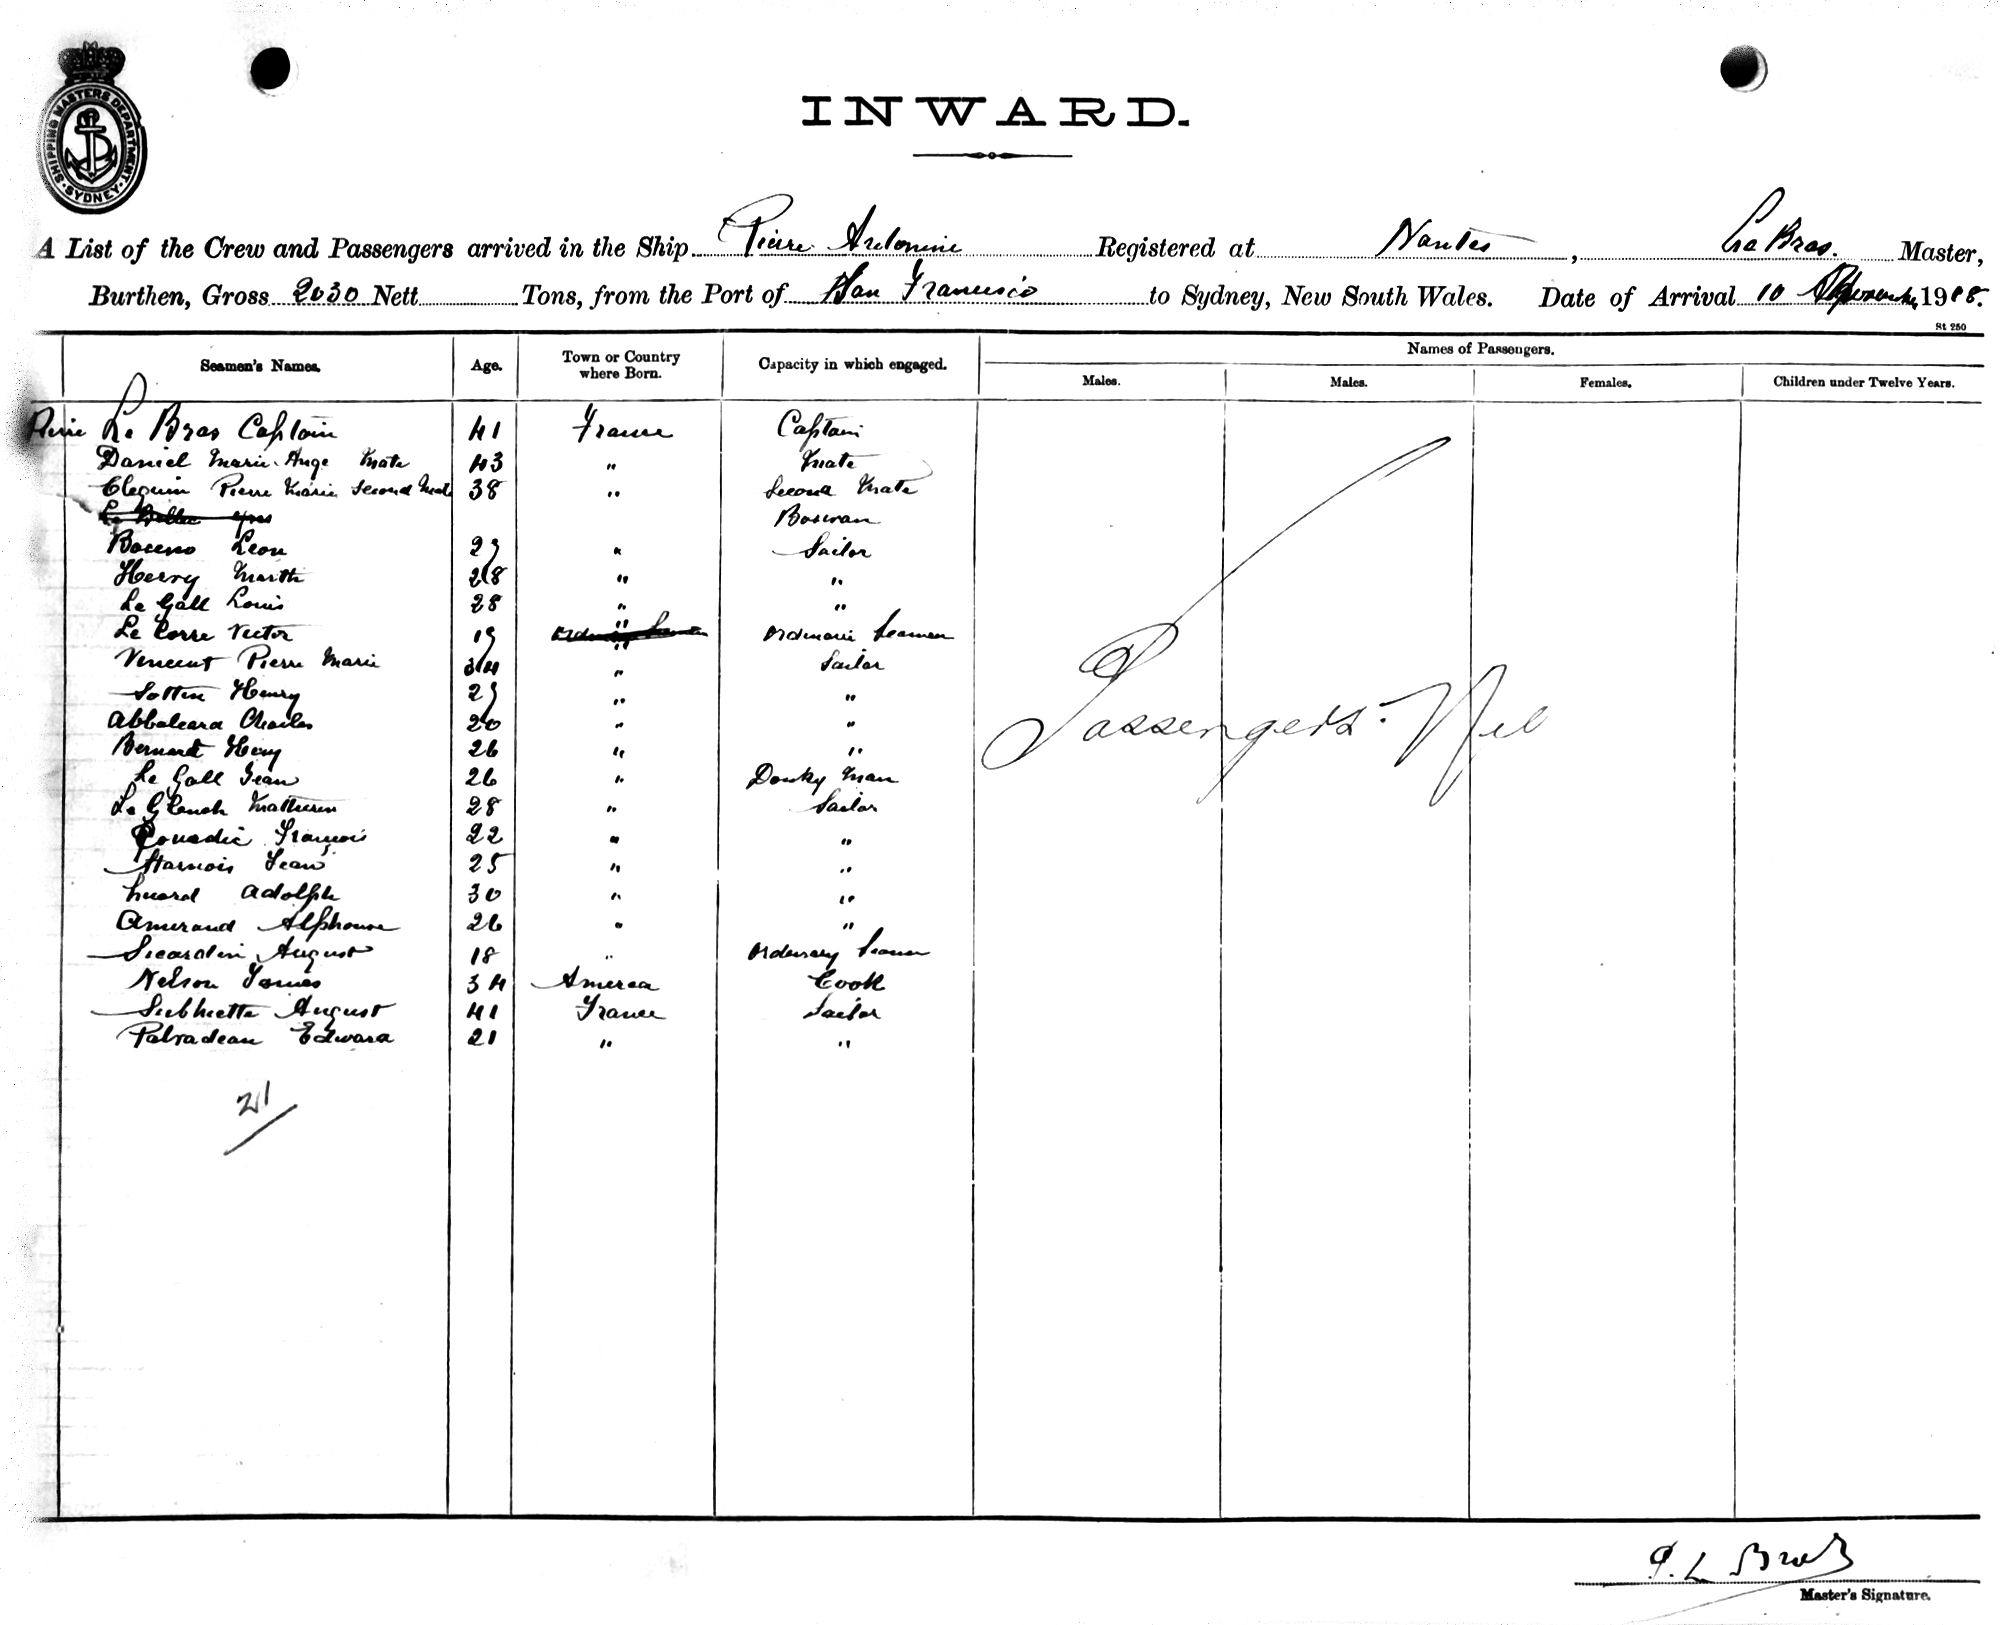 SHIPPING MASTERS DEPARTMENT
SYDNEY
INWARD.
A List of the Crew and Passengers arrived in the Ship Pierre Antonine Registered at Nantes, Le Bras. Master,
Burthen, Gross 2030 Nett Tons, from the Port of San Francisco to Sydney, New South Wales. Date of Arrival 10 1918.
St 250
Seamen's Names. Age. Town or Country where Born. Capacity in which engaged. Names of Passengers.
Males. Males. Females. Children under Twelve Years.
Pierre Le Bras Captain 41 France Captain
Daniel Marie Ange Mate 43 " Mate
Cleguin Pierre Marie Second Mate 38 " Second Mate
Le yves Boseran
Boceno Leon 29 " Sailor
Hervy Marth 28 " "
Le Gall Louis 28 " "
Le Corre Victor 19 " Ordinarie Seamen
Vincent Pierre Marie 34 " Sailor
Sottin Henry 29 " "
Abbaleard Charles 20 " "
Bernard Henry 26 " "
Le Gall Jean 26 " Donky Man
Le Glouch Mathurin 28 " Sailor
François 22 " "
Harnois Jean 25 " "
Luard Adolph 30 " "
Amerand Alphonse 26 " "
Sicardin August 18 " Ordenary Seamen
Nelson James 34 America Cook
Subhiette August 41 France Sailor
Palvadeau Edward 21 " "
Passengers: Nil
21
P. L Bras
Master's Signature.